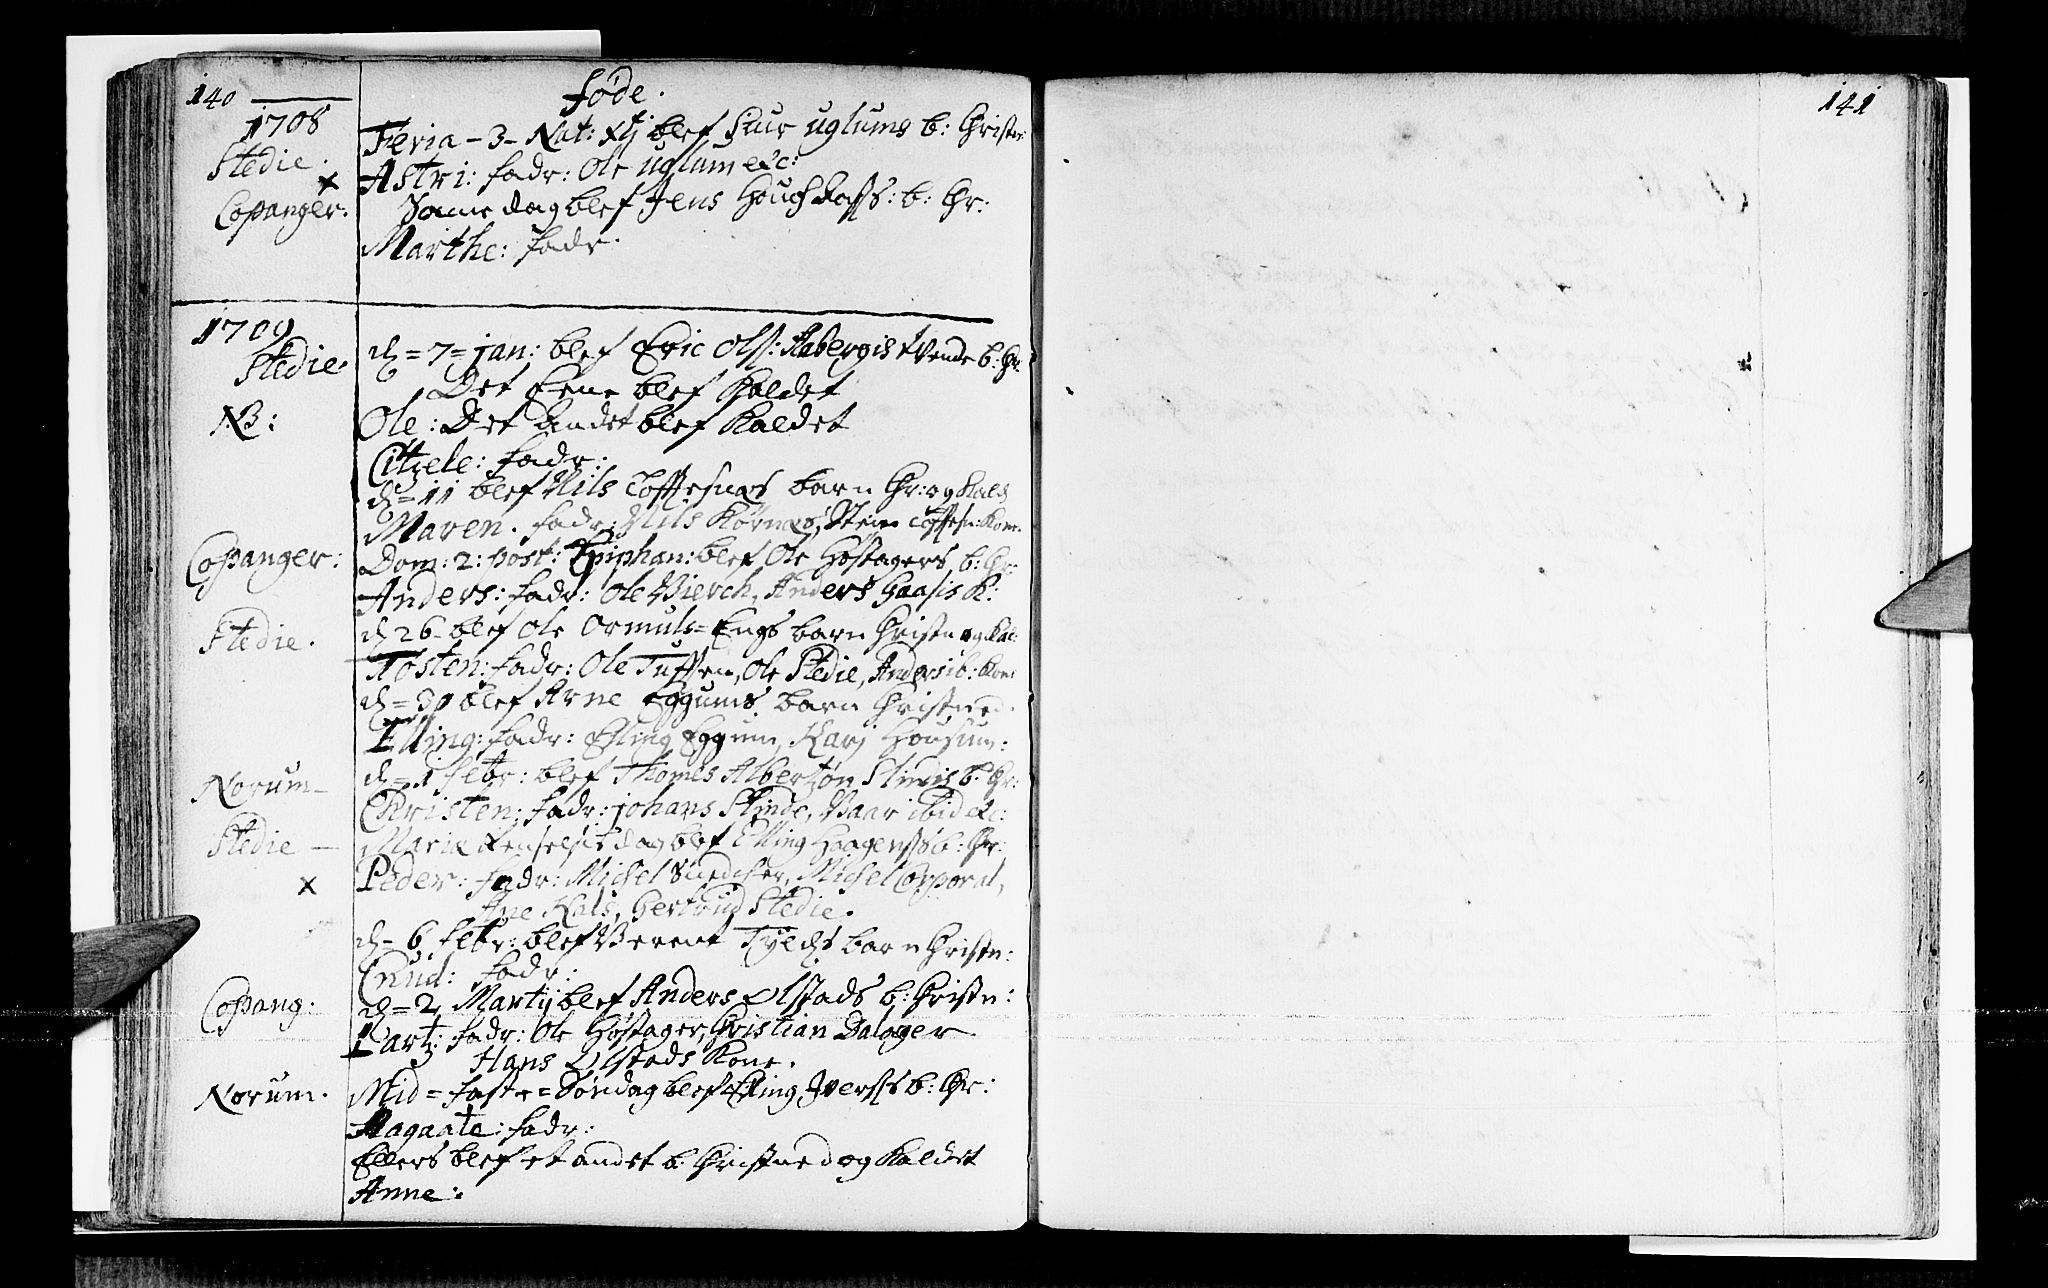 140
Føde.
1708
Stedie.
Feria - 3 - Nat: Xtj blef Siur uglums b: Christn:
Astri: fadr: Ole uglum etc:
x
Copanger.
Same dag blef Jens b: Chr:
Marthe: fadr.
1709
Stedie.
d = 7 = jan: blef Eric Ols: Aabergis tvende b: Chr.
Det Eene blef Kaldet
NB:
Ole: Det Andet blef Kaldet
Citzele: fadr:
d = 11 blef Nils barn Chr: og Kald
Maren. fadr: Nils Kone.
Copanger:
Dom: 2: post: Epiphan: blef Ole Høstagers b: Chr:
Anders: fadr: Ole Bierch, Anders K:
Stedie.
d 26 - blef Ole Ormuls = Engs barn Christn og Kal:
Tosten: fadr: Ole Tuffen, Ole Stedie, Anders ib: Kone
d = 30 blef Arne Eggums barn Christned.
Elling: fadr: Elling Eggum, Karj
Norum -
d = 1 febr: blef Thomes b: Chr:
Christen: fadr: johans Slinde, ibid etc:
Stedie -
Mariæ Renselsis dag blef Elling b: Chr:
x
Peder: fadr: Michel Michel Corporal,
Ane Gertrud Stedie.
d - 6 febr: blef Berent barn Christn:
Cnud: fadr:
Copang:
d = 2 Martij blef Anders Olstads b: Christn:
Lars: fadr: Ole Høstager, Christian Daløger
Hans Olstads Kone.
Norum.
Mid = faste = Søndag blef Elling Iverss b: Chr:
Ragaate: fadr:
Ellers blef et andet b. Christned og Kaldet
Anne:
141